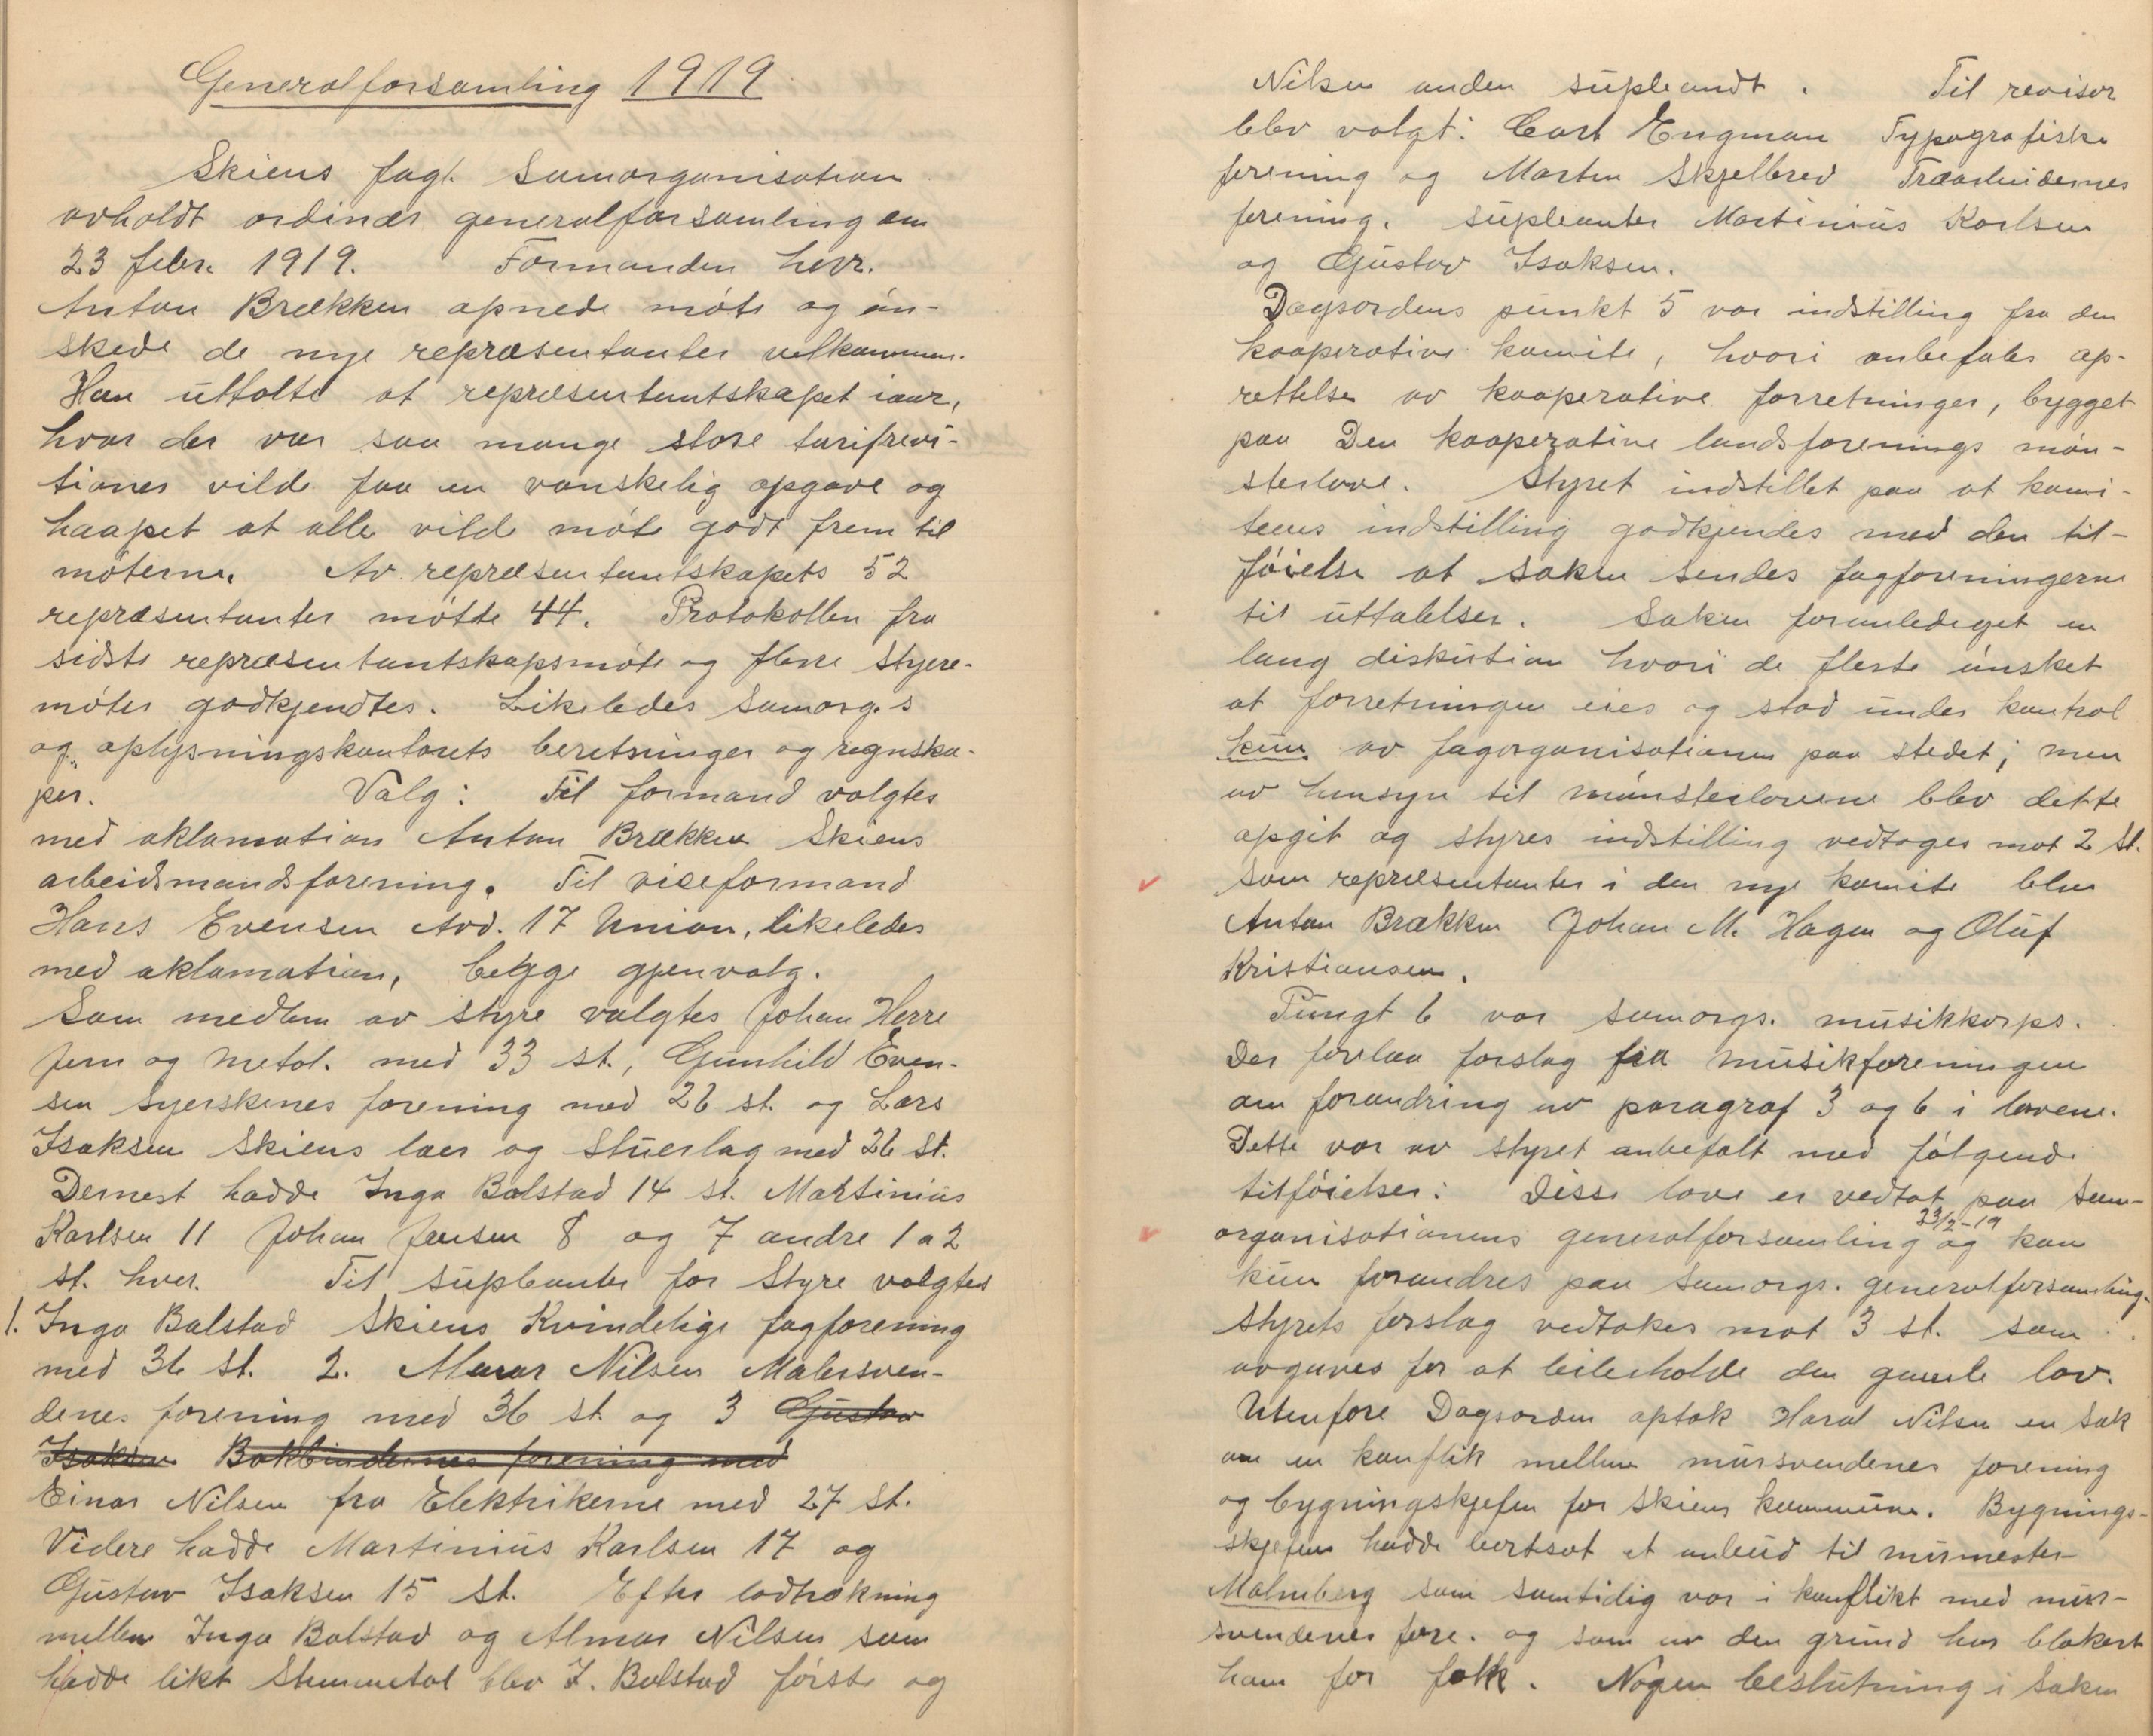 Generalforsamling 1919
Skiens fagl. Samorganisation
avholdt ordinær generalforsamling den
23 febr. 1919. Formanden herr.
Anton Brækken åpnede møte og øn-
skede de nye repræsentanter velkommen.
Han uttalte at repræsentantskapet iaar,
hvor der var saa mange store tarifrevi-
tioner vilde faa en vanskelig opgave og
haapet at alle vilde møte godt frem til
møterne. Av repræsentantskapets 52
repræsentanter møtte 44. Protokollen fra
sidste repræsentantskapsmøte og flere styre-
møter godkjendtes. Likeledes Samorg.s
og oplysningskontorets beretninger og regnska-
per. Valg: Til formand valgtes
med aklamation Anton Brækken Skiens
arbeidsmandsforening. Til viceformand
Hans Evensen Avd. 17 Union, likeledes
med aklamation, begge gjenvalg.
Som medlem av styre valgtes Johan Herre
Jern og Metal. med 33 st., Gunhild Even-
sen Syerskenes forening med 26 st. og Lars
Isaksen Skiens laer og stuerlag med 26 st.
Dernest hadde Inga Bolstad 14 st. Martinius
Karlsen 11 Johan Jensen 8 og 7 andre 1 a 2
st. hver. Til supleanter for Styre valgtes
1. Inga Bolstad Skiens Kvindelige fagforening
med 36 st. 2. Almar Nilsen Malersven-
denes forening med 36 st. og 3 Gustav
Isaksen Bokbindernes forening med
Einar Nilsen fra Elektrikerne med 27 st.
Videre hadde Martinius Karlsen 17 og
Gustav Isaksen 15 st. Efter lodtrækning
mellem Inga Bolstad og Almar Nilsen som
hadde likt Stemmetal blev I. Bolstad første og
Nilsen anden supleandt. Til revisor
blev valgt: Carl Engman Typografiske
forening og Martin Skjelbred Træarbeidernes
forening. supleanter Martinius Karlsen
og Gustav Isaksen.
Dagsordens punkt 5 var indstilling fra den
kooperative komite, hvori anbefales op-
rettelse av kooperative forretninger, bygget
paa Den kooperative landsforenings møn-
sterlove. Styret indstillet paa at komi-
teens indstilling godkjendes med den til-
føielse at saken sendes fagforeningerne
til uttalelser. Saken foranlediget en
lang diskution hvori de fleste ønsket
at forretningen eies og stod under kontrol
kun av fagorganisationen paa stedet; men
av hensyn til mønsterlovene blev dette
opgit og styres indstilling vedtoges mot 2 st.
Som repræsentanter i den nye komite blev
Anton Brækken Johan M. Hagen og Oluf
Kristiansen.
Pungt 6 var samorgs. musikkorps.
Der forelaa forslag fra musikforeningen
om forandring av paragraf 3 og 6 i lovene.
Dette var av styret anbefalt med følgende
tilføielser: Disse love er vedtat paa Sam-
organisationens generalforsamling 23/2-19 og kan
kun forandres paa Samorgs. generalforsamling.
Styrets forslag vedtokes mot 3 st. som
avgaves for at beibeholde den gamle lov.
Utenfore Dagsorden optok Haral Nilsen en Sak
om en konflik mellem mursvendenes forening
og bygningskjefen for Skiens kommune. Bygnings-
skjefen hadde bortsat et anbud til murmester
Malmberg som samtidig var i konflikt med mur-
svendenes fore. og som av den grund har blokert
ham for folk. Nogen beslutning i Saken